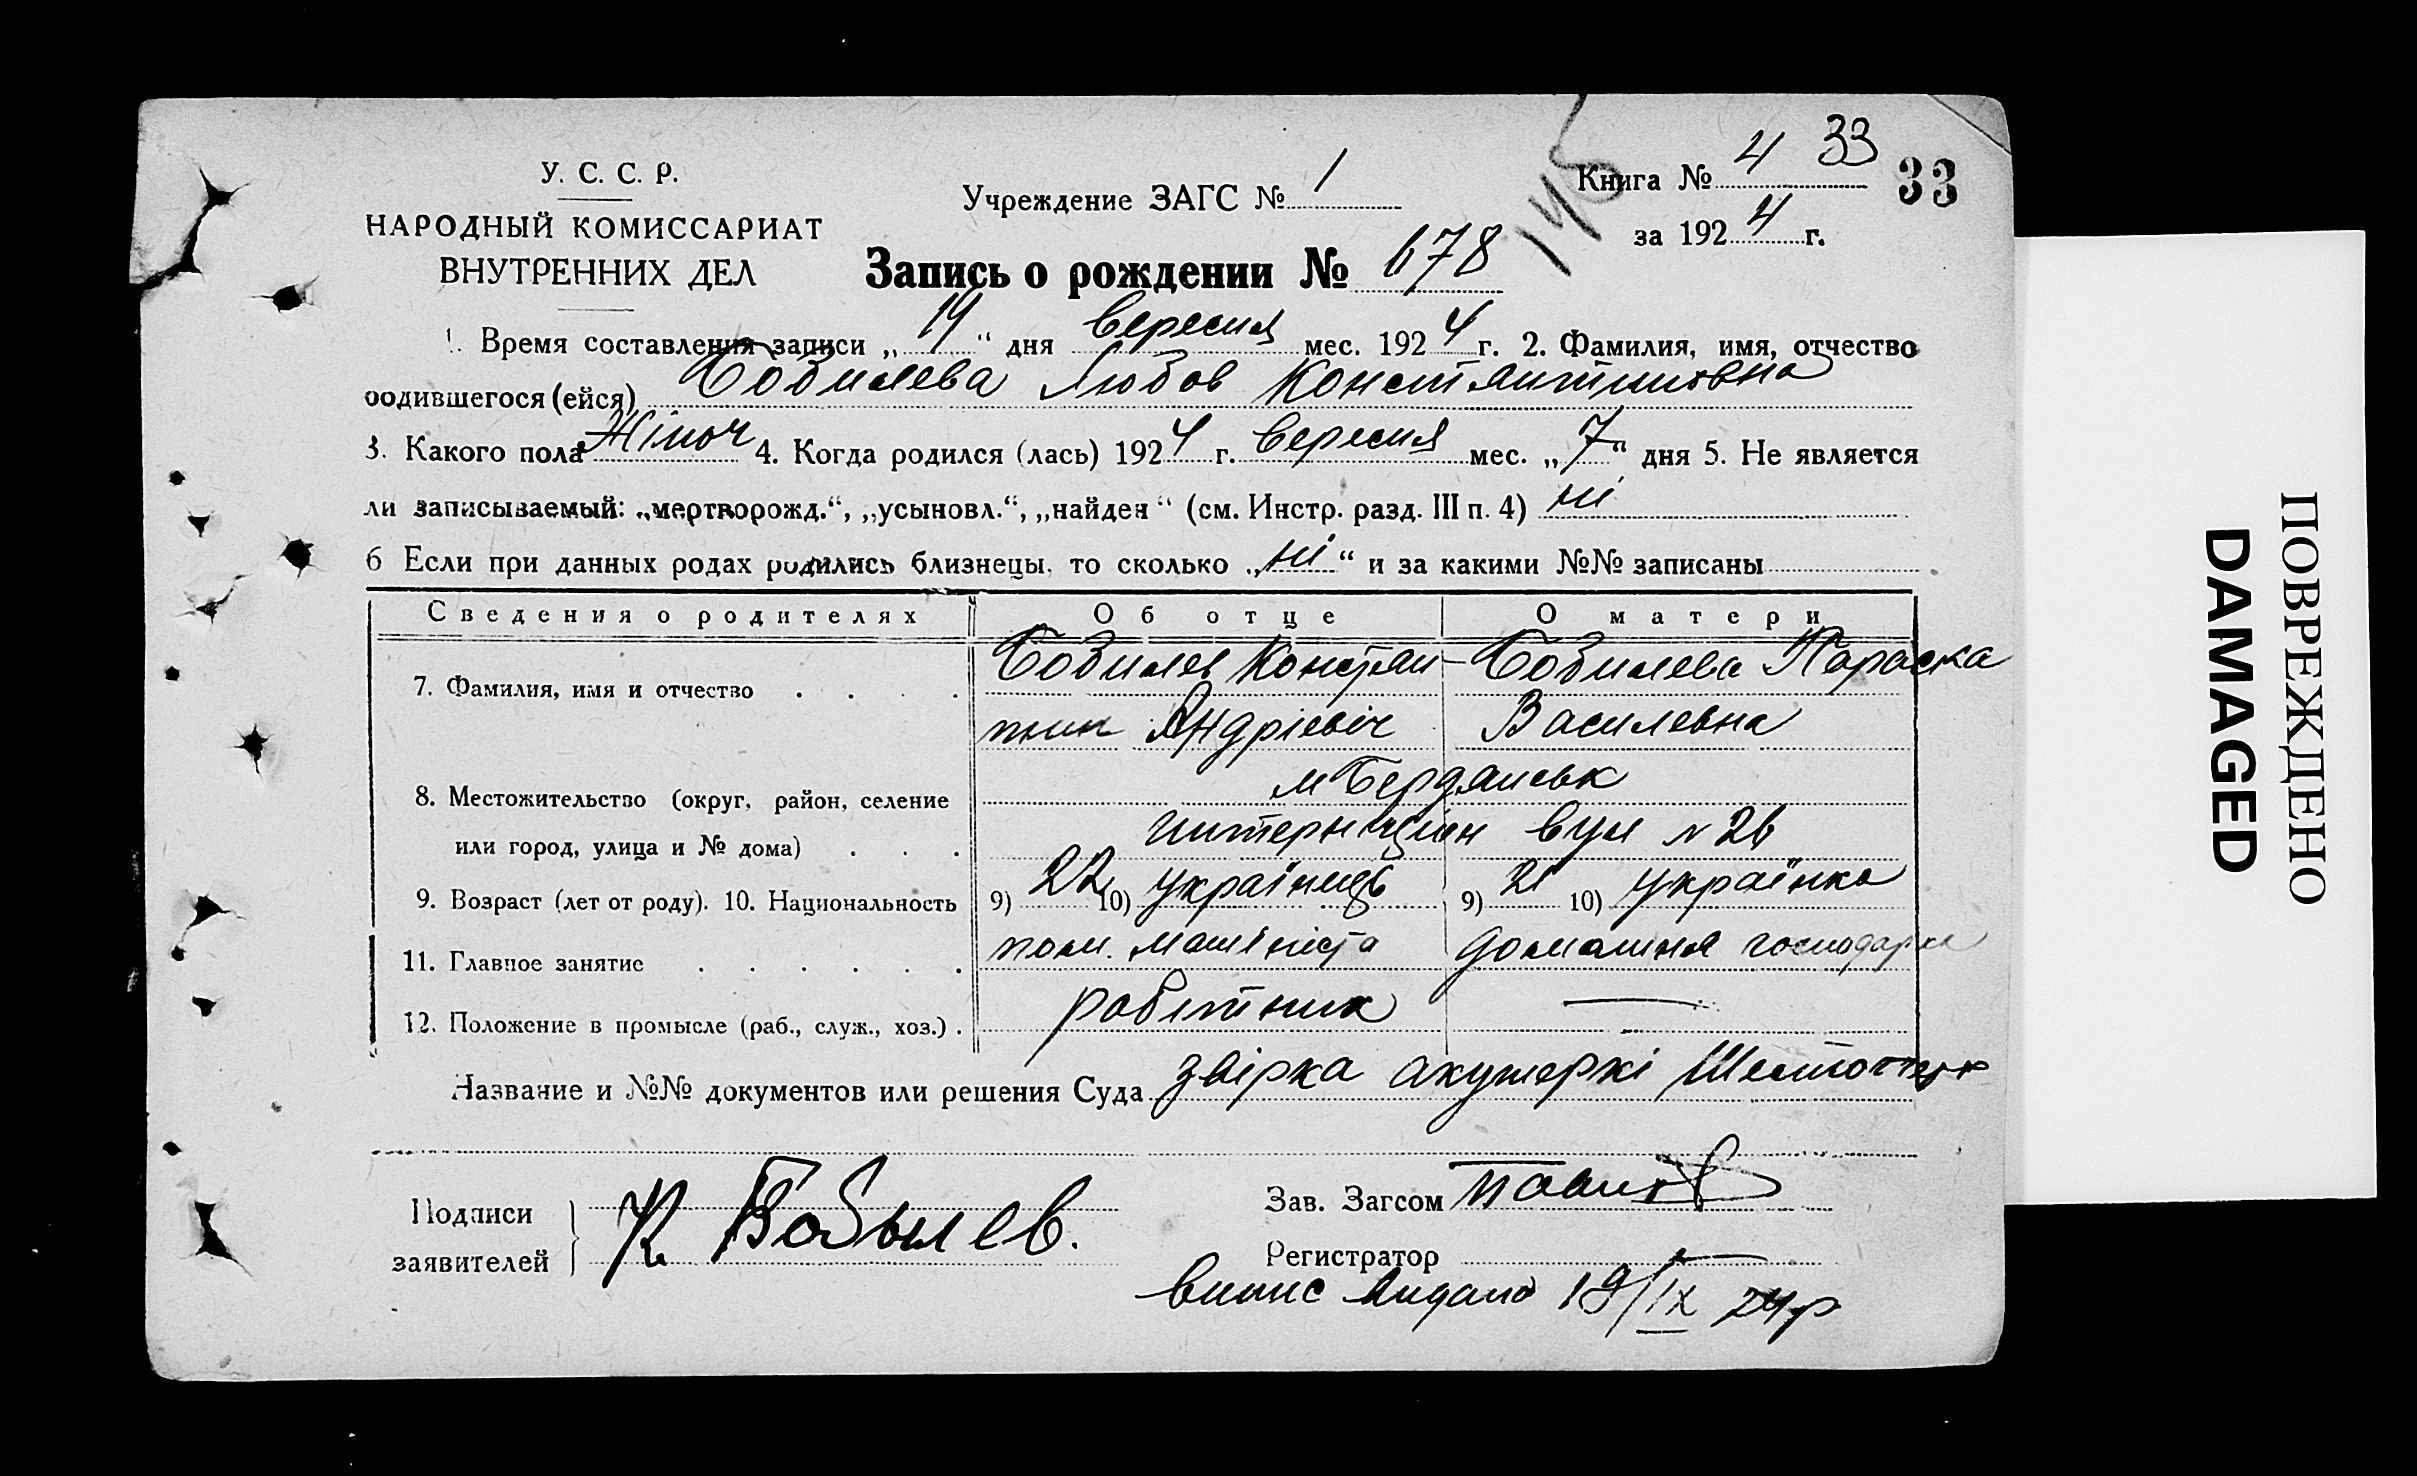 33
У. С. С. Р.
НАРОДНЫЙ КОМИССАРИАТ
ВНУТРЕННИХ ДЕЛ
Учреждение ЗАГС № 1
Книга № 4 33
за 1924 г.
145
Запись о рождении № 678
1. Время составления записи „19“ дня вересня мес. 1924 г. 2. Фамилия, имя, отчество
родившегося (ейся) Бобилева Любов Констянтиновна
3. Какого пола Жіноч 4. Когда родился (лась) 1924 г. вересня мес. „7“ дня 5. Не является
ли записываемый: „мертворожд.“, „усыновл.“, „найден“ (см. Инстр. разд. III п. 4) ні
6 Если при данных родах родились близнецы, то сколько „ні“ и за какими №№ записаны
Сведения о родителях Об отце О матери
7. Фамилия, имя и отчество . . . . Бобилев Констян- Бобилева Параска
тин Андріевіч Василевна
8. Местожительство (округ, район, селение м Бердянськ
или город, улица и № дома) . . . Интернацион вул № 26
9. Возраст (лет от роду). 10. Национальность 9) 22 10) українець 9) 21 10) українка
11. Главное занятие . . . . . . пом. машініста домашня господарка
12. Положение в промысле (раб., служ., хоз.) . робітник —
Название и №№ документов или решения Суда звірка акушеркі
Подписи
заявителей
К Бобылев.
Зав. Загсом
Регистратор
випис видано 19/IX 24р
ПОВРЕЖДЕНО
DAMAGED